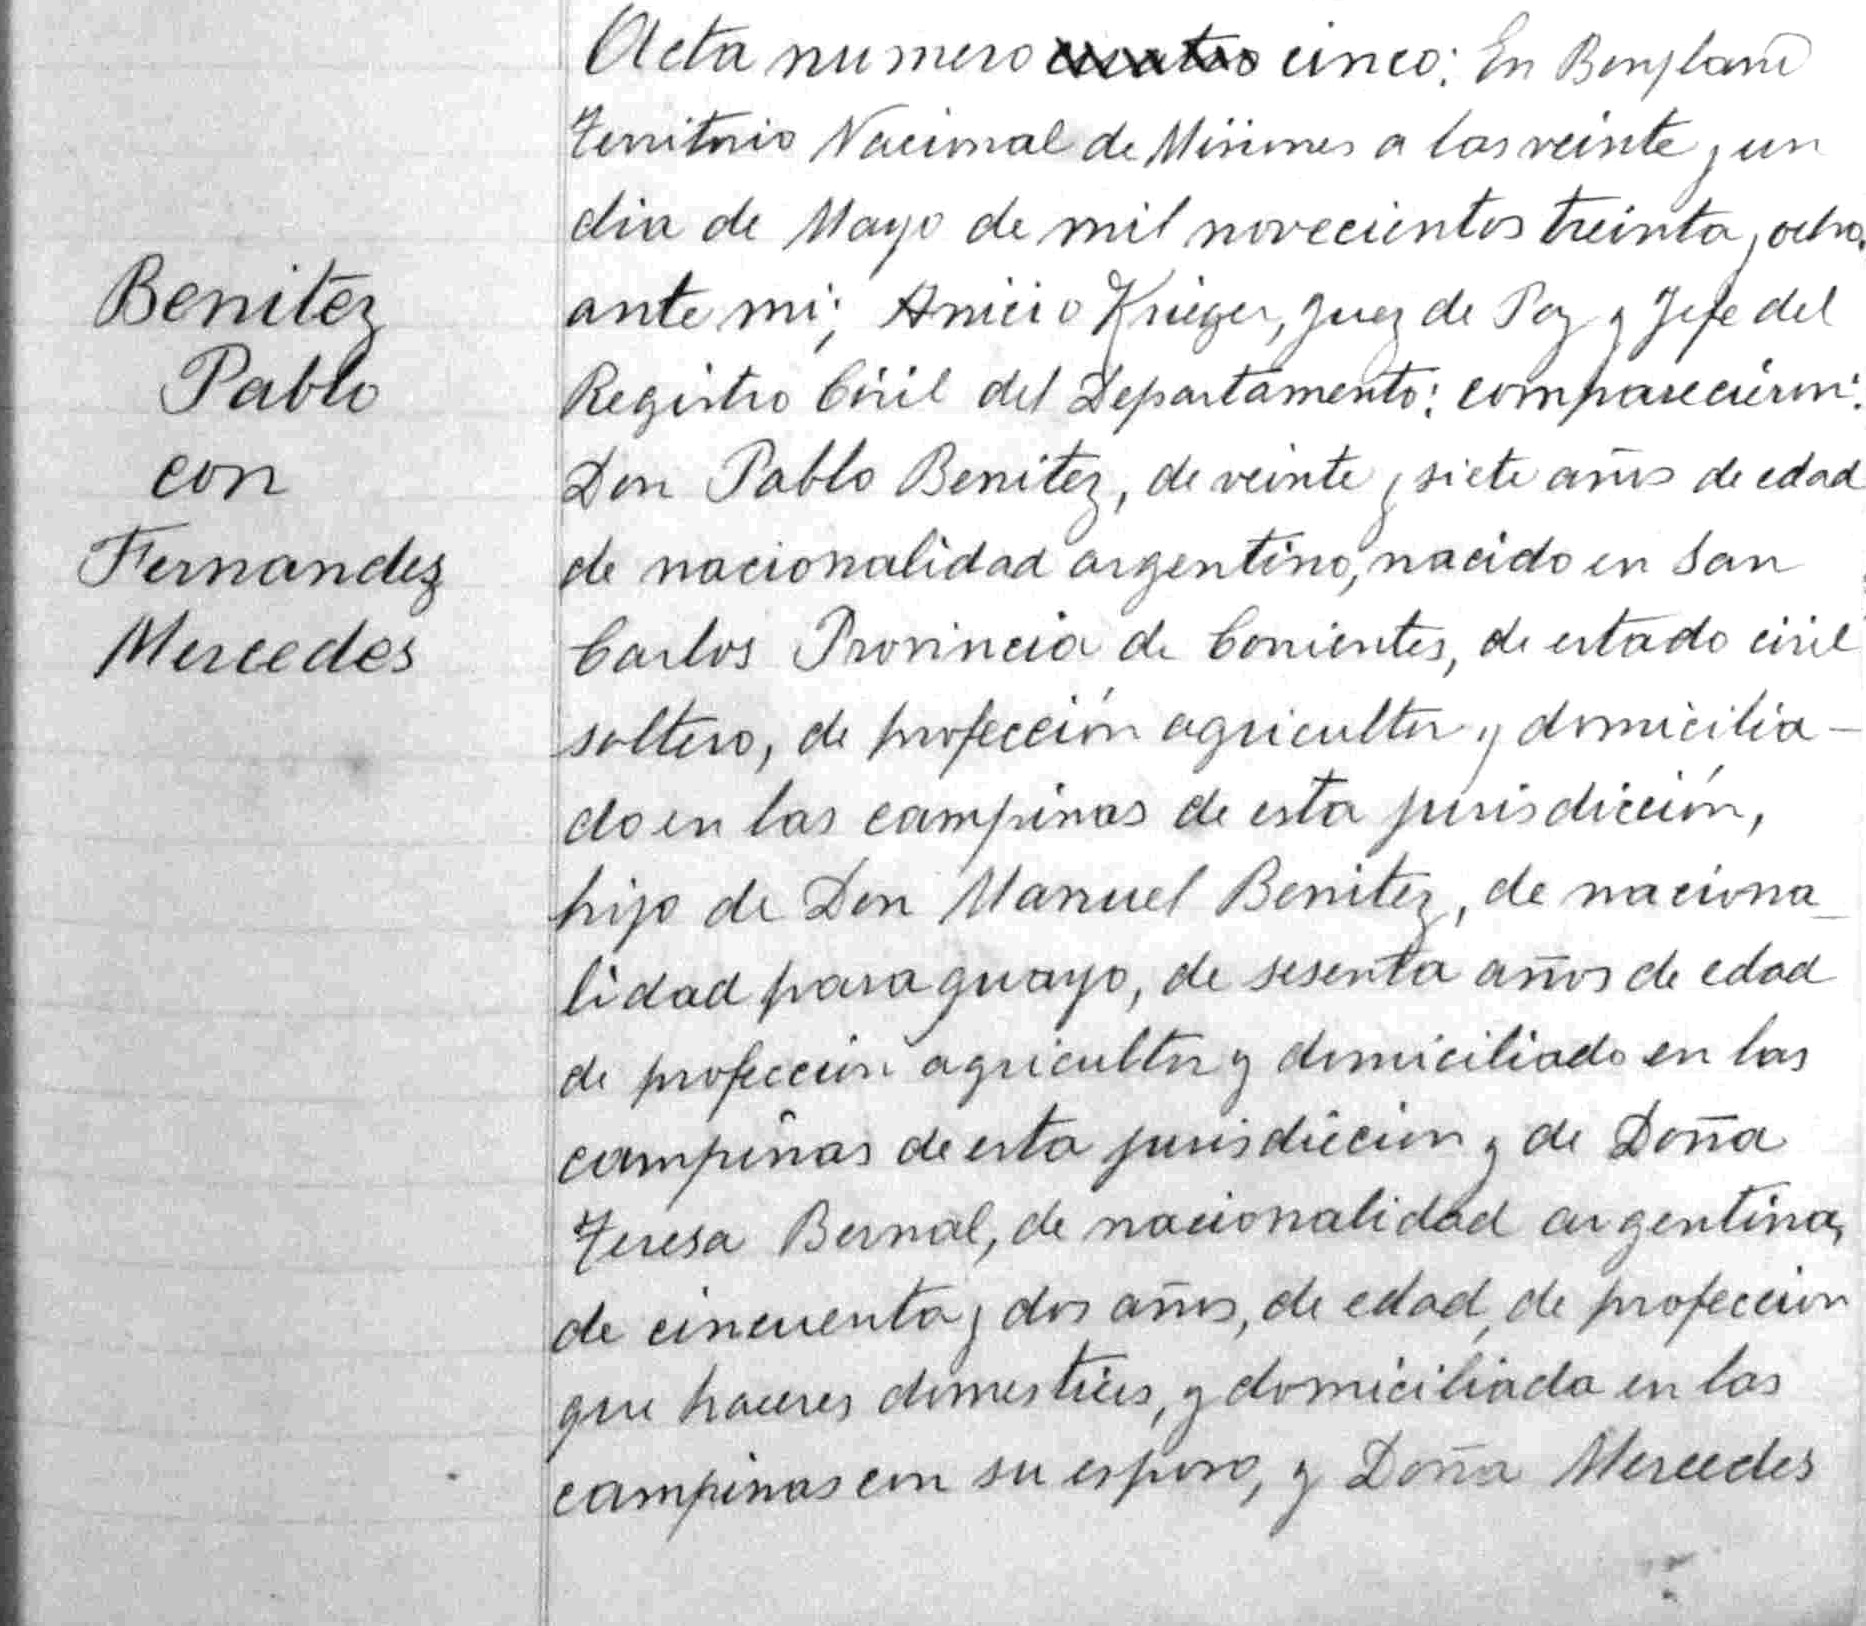 Benitez
Pablo
con
Fernandez
Mercedes
Acta numero cuatro cinco: En Bonpland
Territorio Nacional de Misiones a los veinte y un
dia de Mayo de mil novecientos treinta y ocho,
ante mi; Anicio Krieger, Juez de Paz y Jefe del
Registro Civil del Departamento: comparecieron:
Don Pablo Benitez, de veinte y siete años de edad
de nacionalidad argentino, nacido en San
Carlos Provincia de Corrientes, de estado civil
soltero, de profección agricultor y domicilia-
do en las campinas de esta jurisdicción,
hijo de Don Manuel Benitez, de naciona-
lidad paraguayo, de sesenta años de edad
de profeccion agricultor y domiciliado en las
campiñas de esta jurisdiccion y de Doña
Teresa Bernal, de nacionalidad argentina,
de cincuenta y dos años, de edad, de profeccion
que haceres domesticos, y domiciliada en las
campinas con su esposo, y Doña Mercedes